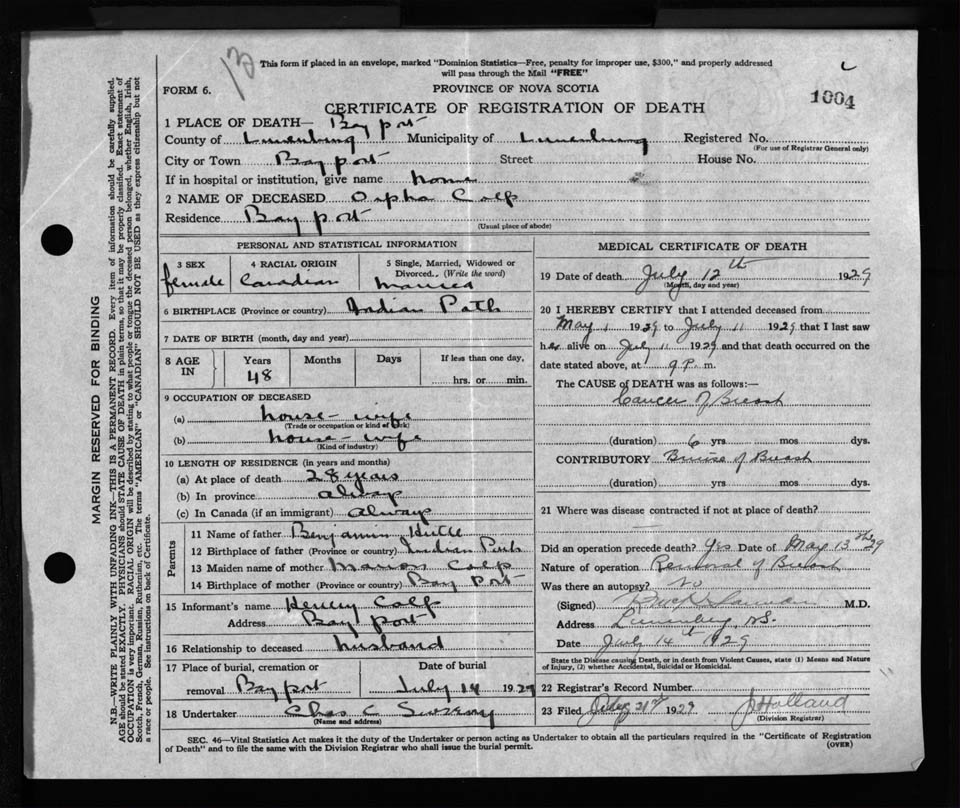 13
This form if placed in an envelope, marked "Dominion Statistics—Free, penalty for improper use, $300," and properly addressed
will pass through the Mail "FREE"
FORM 6.
PROVINCE OF NOVA SCOTIA
1004
CERTIFICATE OF REGISTRATION OF DEATH
1 PLACE OF DEATH— Bayport
County of Lunenburg Municipality of Lunenburg Registered No.
(For use of Registrar General only)
City or Town Bayport Street House No.
If in hospital or institution, give name home
2 NAME OF DECEASED Orpha Colp
Residence Bayport
(Usual place of abode)
PERSONAL AND STATISTICAL INFORMATION
3 SEX female
4 RACIAL ORIGIN Canadian
5 Single, Married, Widowed or
Divorced.. (Write the word)
married
6 BIRTHPLACE (Province or country) Indian Path
7 DATE OF BIRTH (month, day and year)
8 AGE IN Years 48 Months Days If less than one day,
hrs. or min.
9 OCCUPATION OF DECEASED
(a) house-wife
(Trade or occupation or kind of work)
(b) house-wife
(Kind of industry)
10 LENGTH OF RESIDENCE (in years and months)
(a) At place of death 28 years
(b) In province always
(c) In Canada (if an immigrant) always
Parents
11 Name of father Benjamin
12 Birthplace of father (Province or country) Indian Path
13 Maiden name of mother Marion Colp
14 Birthplace of mother (Province or country) Bayport
15 Informant's name Henry Colp
Address Bayport
16 Relationship to deceased husband
17 Place of burial, cremation or removal Bayport
Date of burial July 14 1929
18 Undertaker Chas C
(Name and address)
MEDICAL CERTIFICATE OF DEATH
19 Date of death July 12th 1929
(Month, day and year)
20 I HEREBY CERTIFY that I attended deceased from
May 1 1929 to July 11 1929 that I last saw
her alive on July 11 1929 and that death occurred on the
date stated above, at 9 P. m.
The CAUSE OF DEATH was as follows:—
Cancer of Breast
(duration) 6 yrs mos dys.
CONTRIBUTORY Bruise of Breast
(duration) yrs. mos. dys.
21 Where was disease contracted if not at place of death?
Did an operation precede death? Yes Date of May 13 29
Nature of operation Removal of Breast
Was there an autopsy? No
(Signed) M.D.
Address Lunenburg N.S.
Date July 14th 1929
State the Disease causing Death, or in death from Violent Causes, state (1) Means and Nature
of Injury, (2) whether Accidental, Suicidal or Homicidal.
22 Registrar's Record Number
23 Filed 21st 1929 J Holland
(Division Registrar)
SEC. 46—Vital Statistics Act makes it the duty of the Undertaker or person acting as Undertaker to obtain all the particulars required in the "Certificate of Registration
of Death" and to file the same with the Division Registrar who shall issue the burial permit.
(OVER)
MARGIN RESERVED FOR BINDING
N.B.—WRITE PLAINLY WITH UNFADING INK—THIS IS A PERMANENT RECORD. Every item of information should be carefully supplied.
AGE should be stated EXACTLY. PHYSICIANS should STATE CAUSE OF DEATH in plain terms, so that it may be properly classified. Exact statement of
OCCUPATION is very important. RACIAL ORIGIN will be described by stating to what people or tongue the deceased person belonged, whether English, Irish,
Scotch, French, German, Russian, Ruthenian, etc. The terms "AMERICAN" or "CANADIAN" SHOULD NOT BE USED as they express citizenship but not
a race or people. See instructions on back of Certificate.